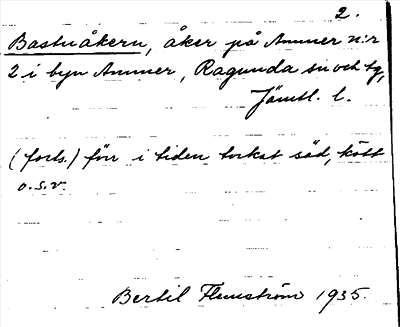 2.
Bastuåkern, åker på Ammer n:r
2 i byn Ammer, Ragunda sn och tg,
Jämtl. l.
(forts.) förr i tiden torkat säd, kött
o.s.v.
Bertil Flemström 1935.